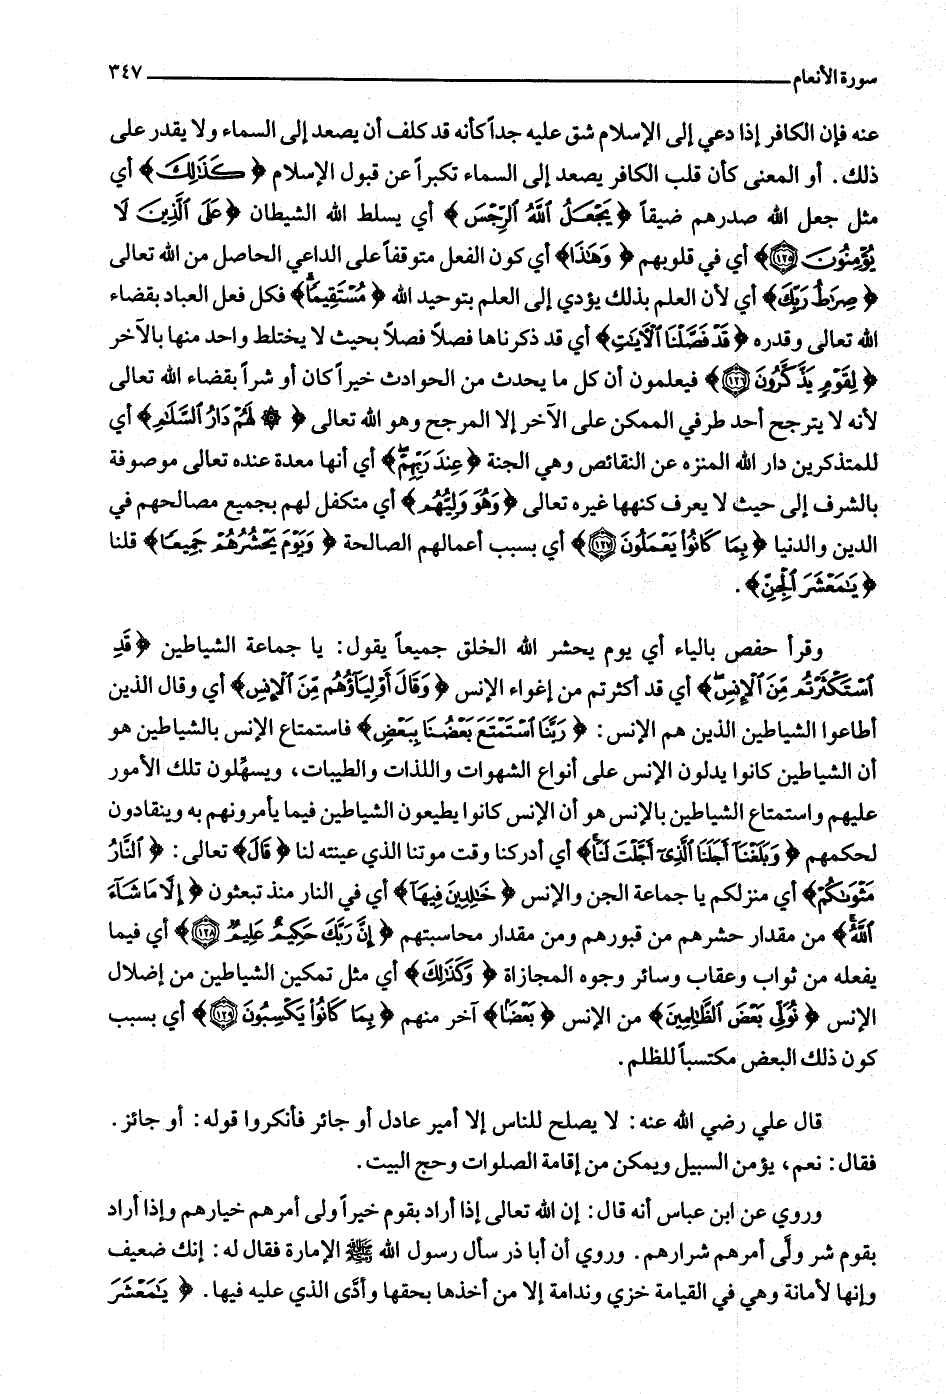 سورة الأنعام ٣٤٧
عنه فإن الكافر إذا دعي إلى الإسلام شق عليه جداً كأنه قد كلف أن يصعد إلى السماء ولا يقدر على
ذلك. أو المعنى كأن قلب الكافر يصعد إلى السماء تكبراً عن قبول الإسلام ﴿كَذَٰلِكَ﴾ أي
مثل جعل الله صدرهم ضيقاً ﴿يَجْعَلُ ٱللَّهُ ٱلرِّجْسَ﴾ أي يسلط الله الشيطان ﴿عَلَى ٱلَّذِينَ لَا
يُؤْمِنُونَ ١٢٥﴾ أي في قلوبهم ﴿وَهَٰذَا﴾ أي كون الفعل متوقفاً على الداعي الحاصل من الله تعالى
﴿صِرَٰطُ رَبِّكَ﴾ أي لأن العلم بذلك يؤدي إلى العلم بتوحيد الله ﴿مُسْتَقِيمًا﴾ فكل فعل العباد بقضاء
الله تعالى وقدره ﴿قَدْ فَصَّلْنَا ٱلْآيَٰتِ﴾ أي قد ذكرناها فصلاً فصلاً بحيث لا يختلط واحد منها بالآخر
﴿لِقَوْمٍ يَذَّكَّرُونَ ١٢٦﴾ فيعلمون أن كل ما يحدث من الحوادث خيراً كان أو شراً بقضاء الله تعالى
لأنه لا يترجح أحد طرفي الممكن على الآخر إلا المرجح وهو الله تعالى ﴿۞ لَهُمْ دَارُ ٱلسَّلَٰمِ﴾ أي
للمتذكرين دار الله المنزه عن النقائص وهي الجنة ﴿عِندَ رَبِّهِمْ﴾ أي أنها معدة عنده تعالى موصوفة
بالشرف إلى حيث لا يعرف كنهها غيره تعالى ﴿وَهُوَ وَلِيُّهُم﴾ أي متكفل لهم بجميع مصالحهم في
الدين والدنيا ﴿بِمَا كَانُوا۟ يَعْمَلُونَ ١٢٧﴾ أي بسبب أعمالهم الصالحة ﴿وَيَوْمَ يَحْشُرُهُمْ جَمِيعًا﴾ قلنا
﴿يَٰمَعْشَرَ ٱلْجِنِّ﴾.
وقرأ حفص بالياء أي يوم يحشر الله الخلق جميعاً يقول: يا جماعة الشياطين ﴿قَدِ
ٱسْتَكْثَرْتُم مِّنَ ٱلْإِنسِ﴾ أي قد أكثرتم من إغواء الإنس ﴿وَقَالَ أَوْلِيَآؤُهُم مِّنَ ٱلْإِنسِ﴾ أي وقال الذين
أطاعوا الشياطين الذين هم الإنس: ﴿رَبَّنَا ٱسْتَمْتَعَ بَعْضُنَا بِبَعْضٍ﴾ فاستمتاع الإنس بالشياطين هو
أن الشياطين كانوا يدلون الإنس على أنواع الشهوات واللذات والطيبات، ويسهِّلون تلك الأمور
عليهم واستمتاع الشياطين بالإنس هو أن الإنس كانوا يطيعون الشياطين فيما يأمرونهم به وينقادون
لحكمهم ﴿وَبَلَغْنَآ أَجَلَنَا ٱلَّذِىٓ أَجَّلْتَ لَنَا﴾ أي أدركنا وقت موتنا الذي عينته لنا ﴿قَالَ﴾ تعالى: ﴿ٱلنَّارُ
مَثْوَىٰكُمْ﴾ أي منزلكم يا جماعة الجن والإنس ﴿خَٰلِدِينَ فِيهَآ﴾ أي في النار منذ تبعثون ﴿إِلَّا مَا شَآءَ
ٱللَّهُ﴾ من مقدار حشرهم من قبورهم ومن مقدار محاسبتهم ﴿إِنَّ رَبَّكَ حَكِيمٌ عَلِيمٌ ١٢٨﴾ أي فيما
يفعله من ثواب وعقاب وسائر وجوه المجازاة ﴿وَكَذَٰلِكَ﴾ أي مثل تمكين الشياطين من إضلال
الإنس ﴿نُوَلِّى بَعْضَ ٱلظَّٰلِمِينَ﴾ من الإنس ﴿بَعْضًۢا﴾ آخر منهم ﴿بِمَا كَانُوا۟ يَكْسِبُونَ ١٢٩﴾ أي بسبب
كون ذلك البعض مكتسباً للظلم.
قال علي رضي الله عنه: لا يصلح للناس إلا أمير عادل أو جائر فأنكروا قوله: أو جائز.
فقال: نعم، يؤمن السبيل ويمكن من إقامة الصلوات وحج البيت.
وروي عن ابن عباس أنه قال: إن الله تعالى إذا أراد بقوم خيراً ولى أمرهم خيارهم وإذا أراد
بقوم شر ولَّى أمرهم شرارهم. وروي أن أبا ذر سأل رسول الله ﷺ الإمارة فقال له: إنك ضعيف
وإنها لأمانة وهي في القيامة خزي وندامة إلا من أخذها بحقها وأدَّى الذي عليه فيها. ﴿يَٰمَعْشَرَ